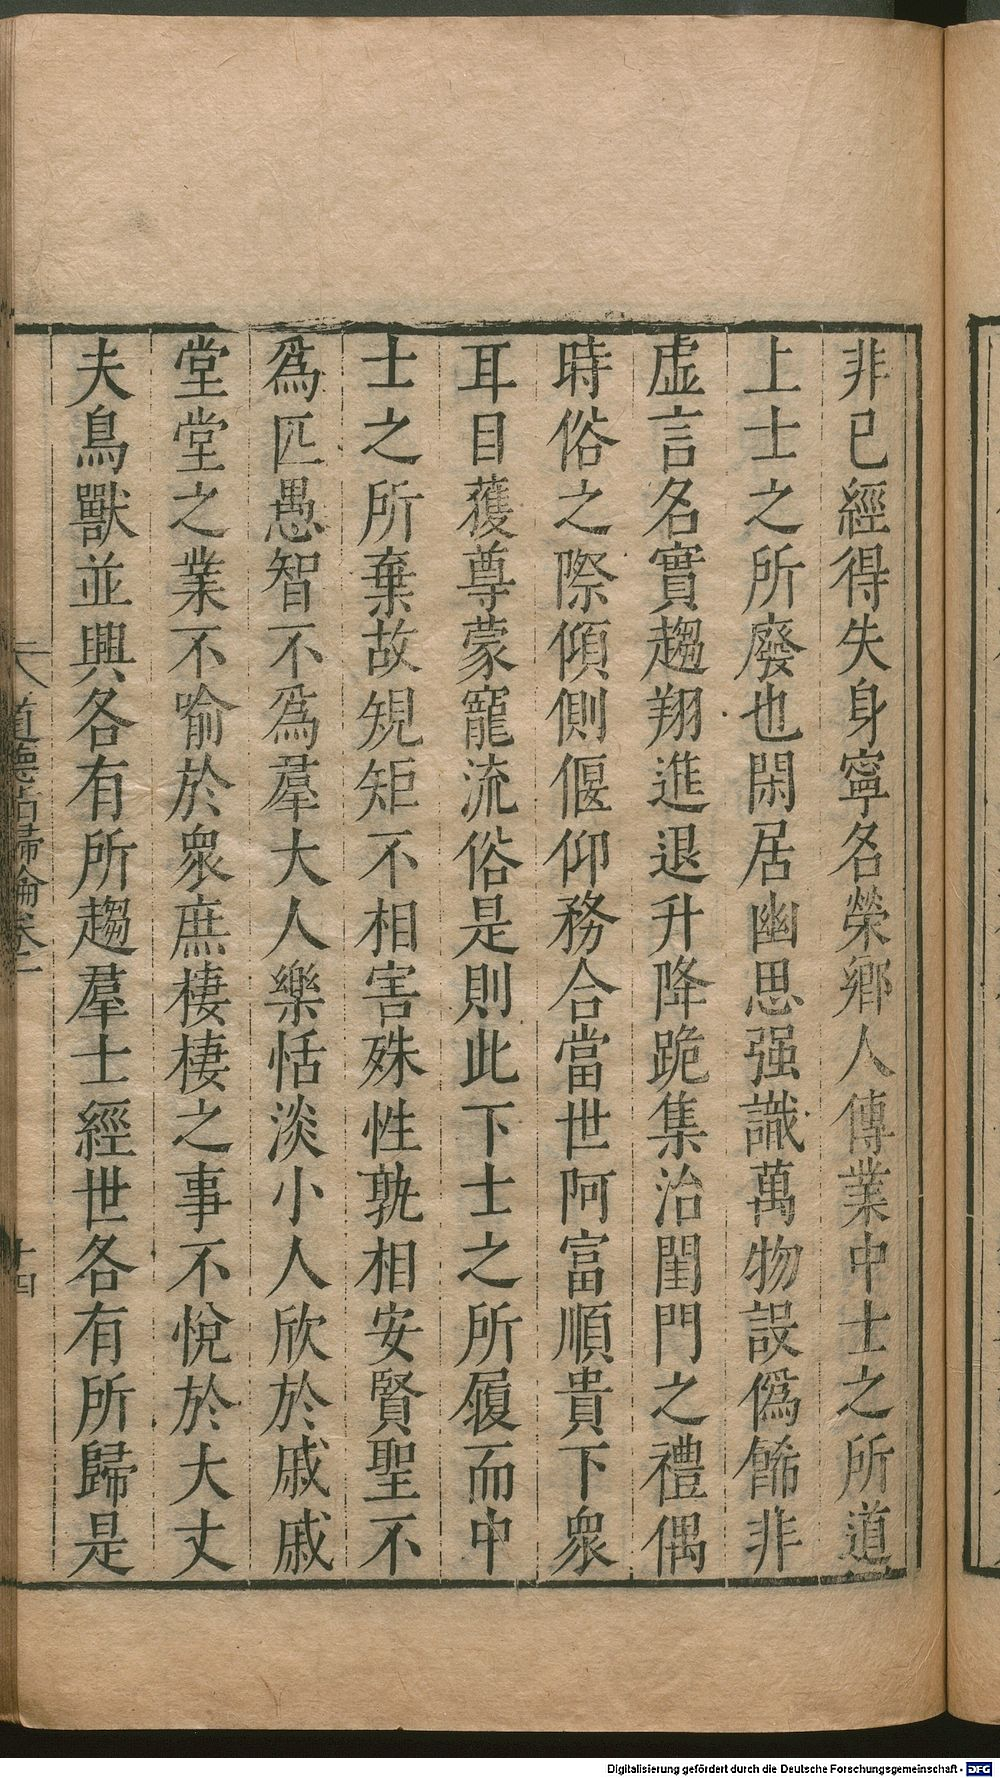 非已經得失身寧名榮鄉人傳業中士之所道
上士之所廢也閑居幽思强識萬物設僞餙非
虚言名實趨翔進退升降跪集治閨門之禮偶
時俗之際傾側偃仰務合當世阿富順貴下衆
耳目獲尊蒙寵流俗是則此下士之所履而中
士之所棄故規矩不相害殊性孰相安賢聖不
爲匹愚智不爲羣大人樂恬淡小人欣於戚戚
堂堂之業不喻於衆庶棲棲之事不悅於大丈
夫鳥獸並興各有所趨羣士經世各有所歸是
道德指歸論卷二
十四
Digitalisierung gefördert durch die Deutsche Forschungsgemeinschaft - DFG